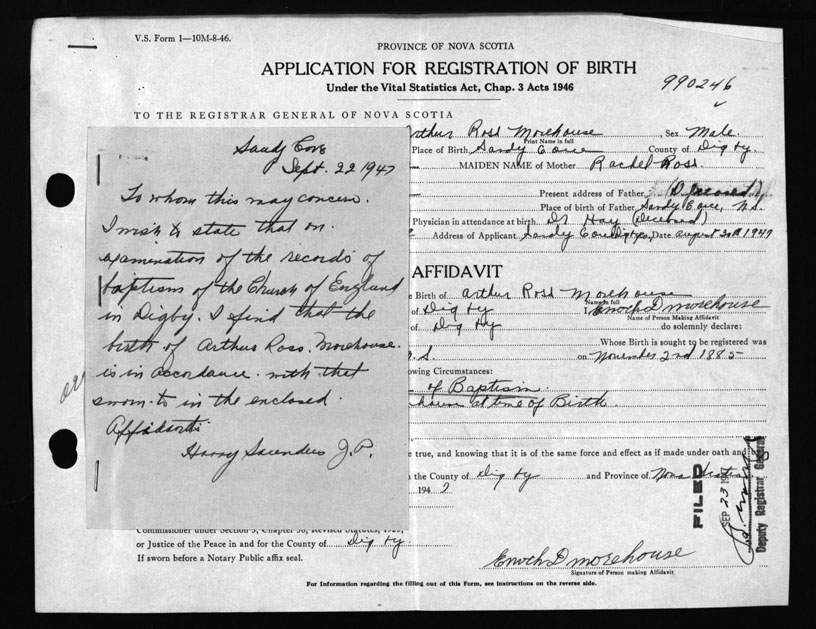 V.S. Form 1—10M-8-46.
PROVINCE OF NOVA SCOTIA
APPLICATION FOR REGISTRATION OF BIRTH
Under the Vital Statistics Act, Chap. 3 Acts 1946
990246
TO THE REGISTRAR GENERAL OF NOVA SCOTIA
Arthur Ross Morehouse Sex Male.
Print Name in full
Place of Birth Sandy Cove County of Digby.
MAIDEN NAME of Mother Rachel Ross.
Present address of Father (Deceased)
Place of birth of Father Sandy Cove, N.S.
Physician in attendance at birth Dr Hay (Deceased)
Address of Applicant Sandy Cove Digby Co, Date August 30th 1947
Sandy Cove
Sept. 22 1947
To whom this may concern.
I wish to state that on
examination of the records of
baptism of the Church of England
in Digby. I find that the
birth of Arthur Ross. Morehouse.
is in accordance. with that
sworn to in the enclosed.
Affidavit
Harry Saunders J.P.
AFFIDAVIT
Birth of Arthur Ross Morehouse
Name in full
of Digby I Enoch D Morehouse
Name of Person Making Affidavit
of Digby do solemnly declare:
Whose Birth is sought to be registered was
N.S. on November 2nd 1885
owing Circumstances:
of Baptism
at time of Birth.
true, and knowing that it is of the same force and effect as if made under oath and by
the County of Digby and Province of Nova Scotia
1947
FILED
SEP 23 1947
Deputy Registrar General
Commissioner under Section 3, Chapter 36, Revised Statutes, 1923,
or Justice of the Peace in and for the County of Digby.
If sworn before a Notary Public affix seal.
Enoch D Morehouse
Signature of Person making Affidavit.
For Information regarding the filling out of this Form, see instructions on the reverse side.